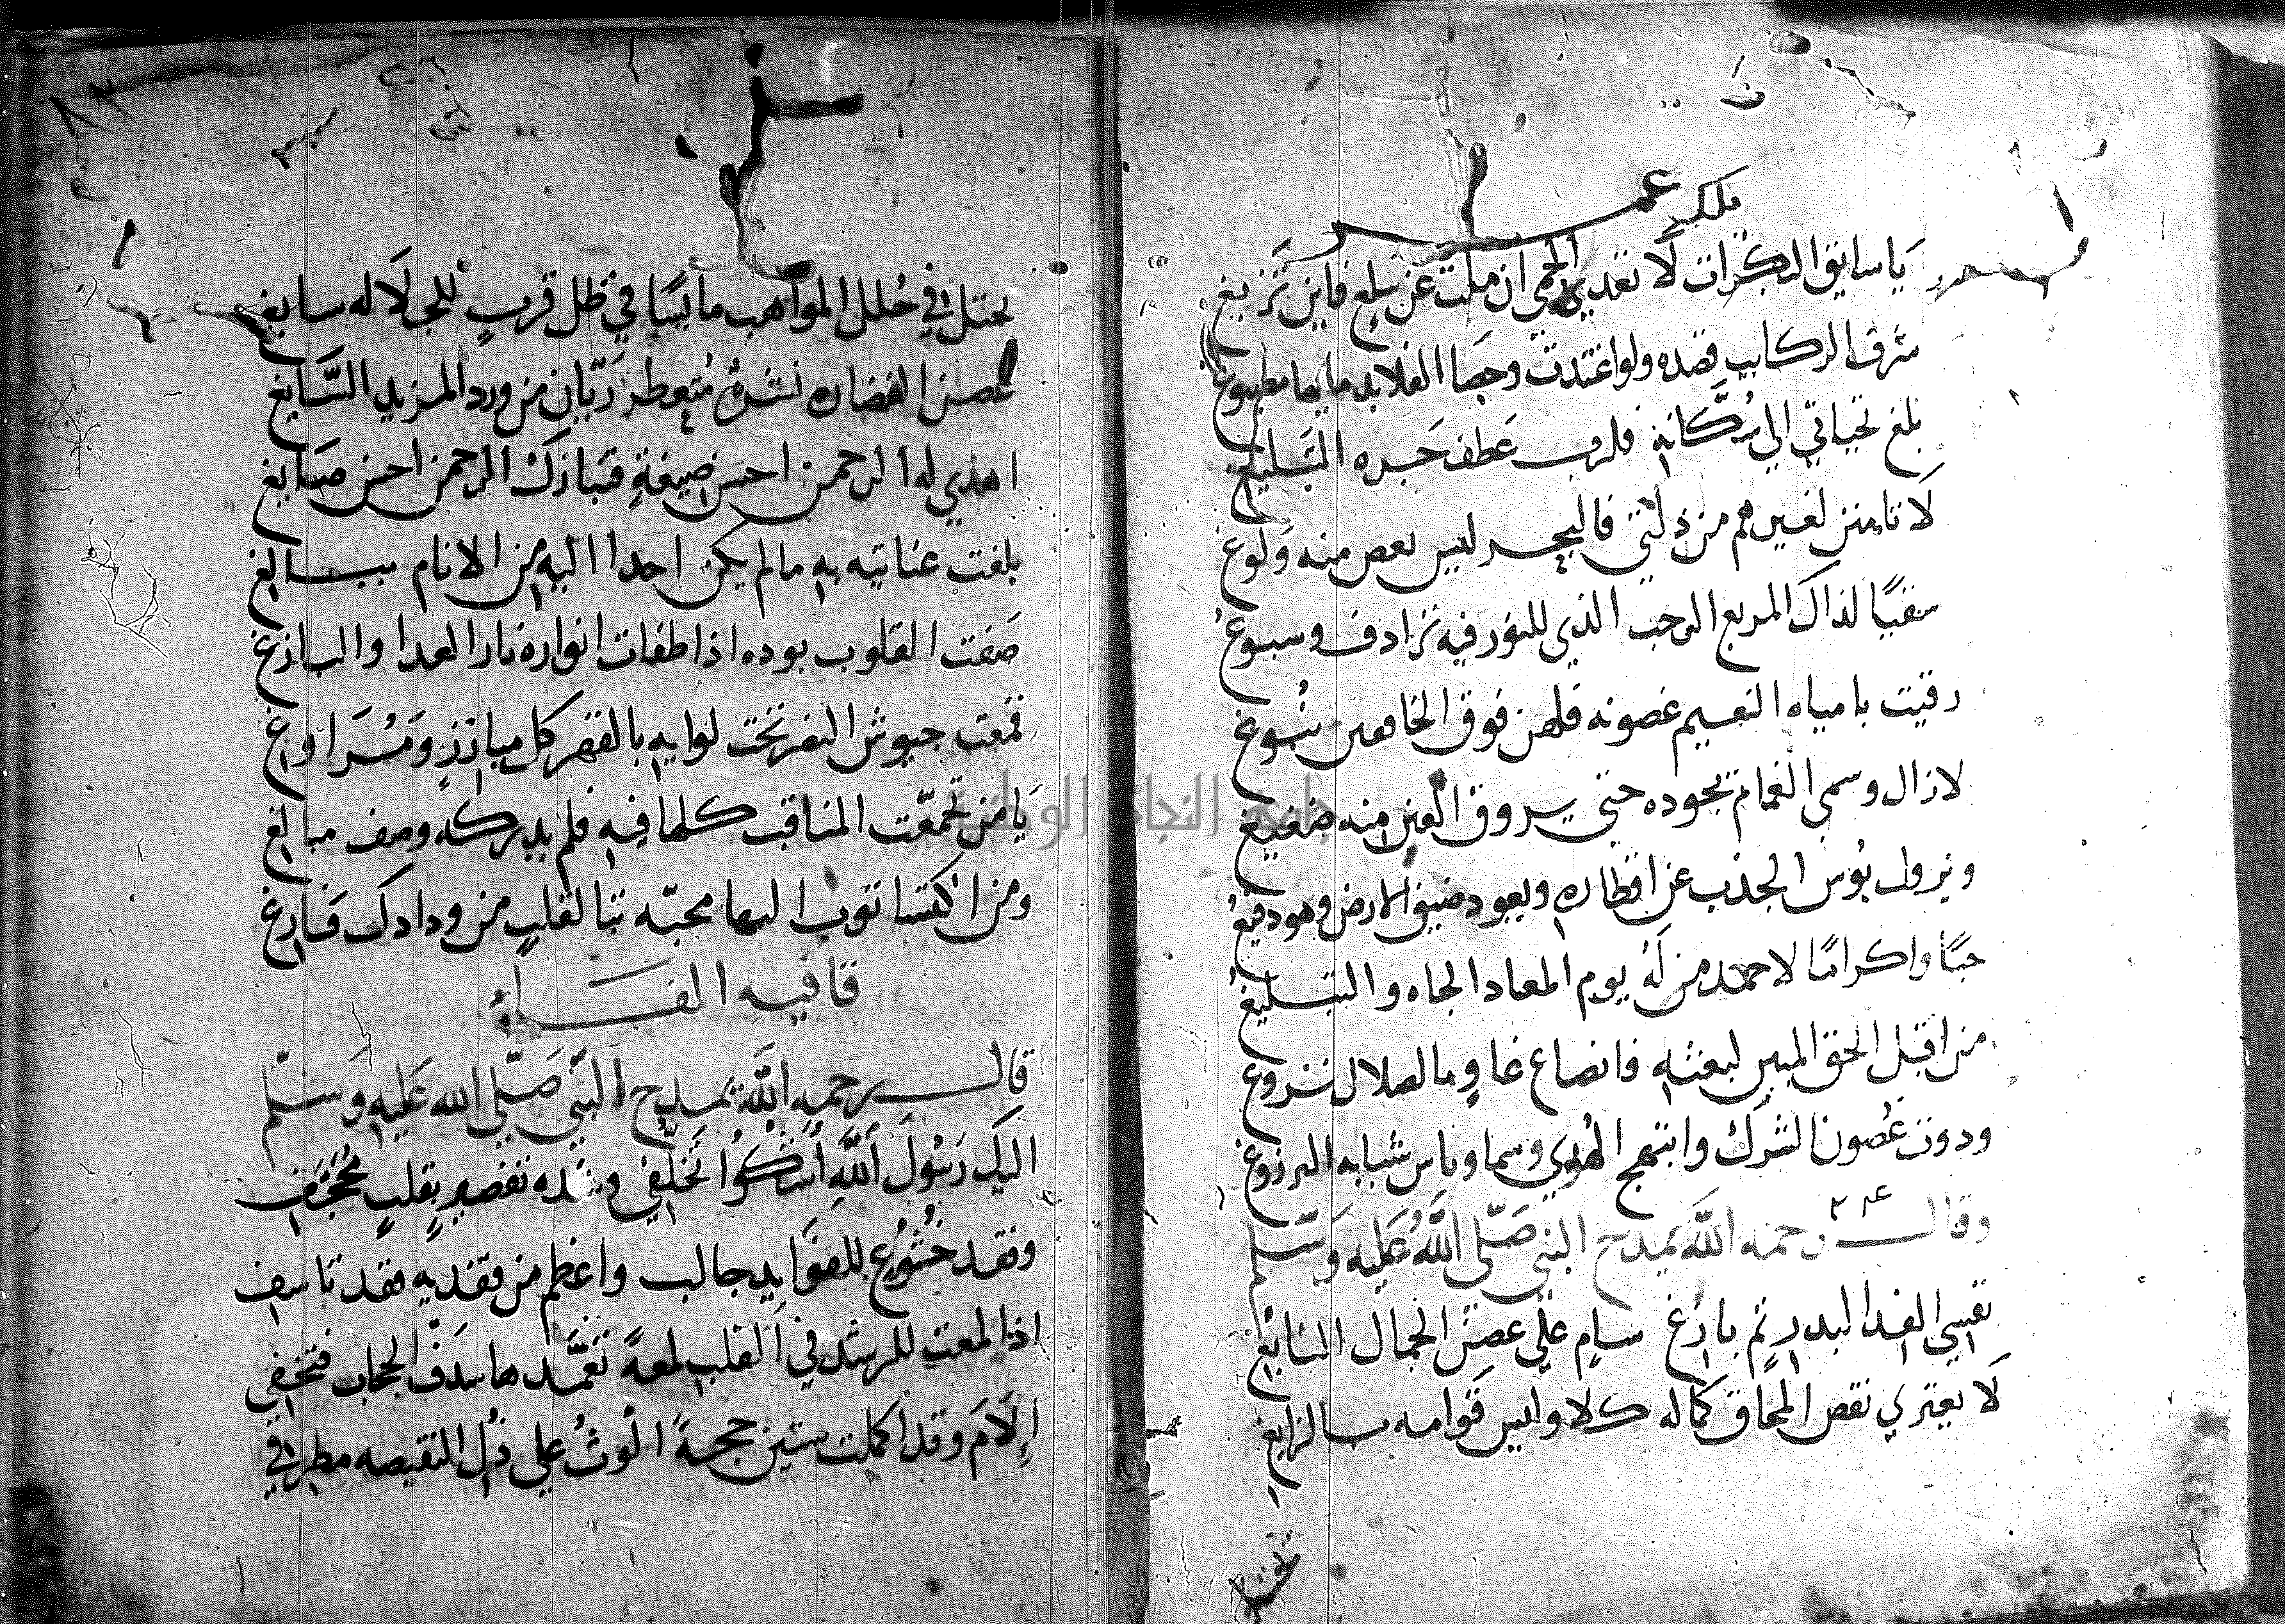 ملكي
يَا سايق البكرات لَا تعدي الحمي ان ملت عن سلع فاين تَزيغ
شرف الركايب قصده ولو اغتدت وحصا الفلا بدمايها مصبوغ
بلغ تحياتي الي سُكَّانه فلرب عَطف جَره التبليغ
لَا تا منن لغيرهم من ذلتي فالبحر ليس بعض منه وَلوغ
سقيًا لذاك المربع الرحب الذي للنور فيه ترادف وسبوغ
رقيت بامياه النعيم غصونه فلهن فوق الخافقين نُبوغ
لازال وسمي الغمام يجوده حتي يروق العين منه ضغيغ
ويزول بُوس الجذب عن اقطاره ويعود ضيق الارض وهو دفيغ
حبًا واكرامًا لاحمد من لَهُ يوم المعاد الجاه والتبليغ
من اقبل الحق المبين لبعثه فانصاع غاوٍ ما لضلال نزوغ
وذوت غُصون الشرك وابتهج الهُدي وسما وباس شبابه البرزوغ
وقالــ رحمه اللَّه يمدح النبي صَلّي اللَّه عَليه وسَلم
نفسي الفدا لبدرٍ تم بازغ سامٍ علي غصن الجمال النابغ
لَا يعتري نقص المحاق كماله كلا وليس قَوامه بالزايغ
يختل
يختل في حُلل المواهب مايسًا في ظل قربٍ للجلَاله سابغ
غصن الغضاره نشرهُ مُتعطر رَيّان من ورد المزيد السَّايغ
اهدي له الرحمن احسن صبغةٍ فتبارك الرحمن احسن صَابغ
بلغت عنايته به ما لم يكن احدا اليه من الانام ببالغ
صَفت القلوب بوده اذا طفات انواره نار العدا والبازغ
قمعت جيوش النصر تحت لوايه بالقهر كل مبارزٍ ومُرَاوغ
يَا من تجمّعت المناقب كلها فيه فلم يدركه وصف مبالغ
ومن اكتسا ثوب البها محبّه تبا لقلبٍ من ودادك فَارغ
قافيه الفــاء
قالــ رحمه اللَّه يمدح النبّي صَلّي الله عَليه وَسلّم
اليك رَسُولَ اللَّهِ أَشكُوا تَخلّفي وشده تقصيرٍ بقلبٍ مُحَجَّف
وفقد خشُوعٍ للفوايد جالب واعظم من فقديه فقد تاسف
اذا لمعت للرشد في القلب لمعةً تَغمَّدها سَدفُ الحجاب فتختفي
إِلَامَ وقد اكملت ستين حجةً الُوثُ علي ذُل النقيصه مطرفي